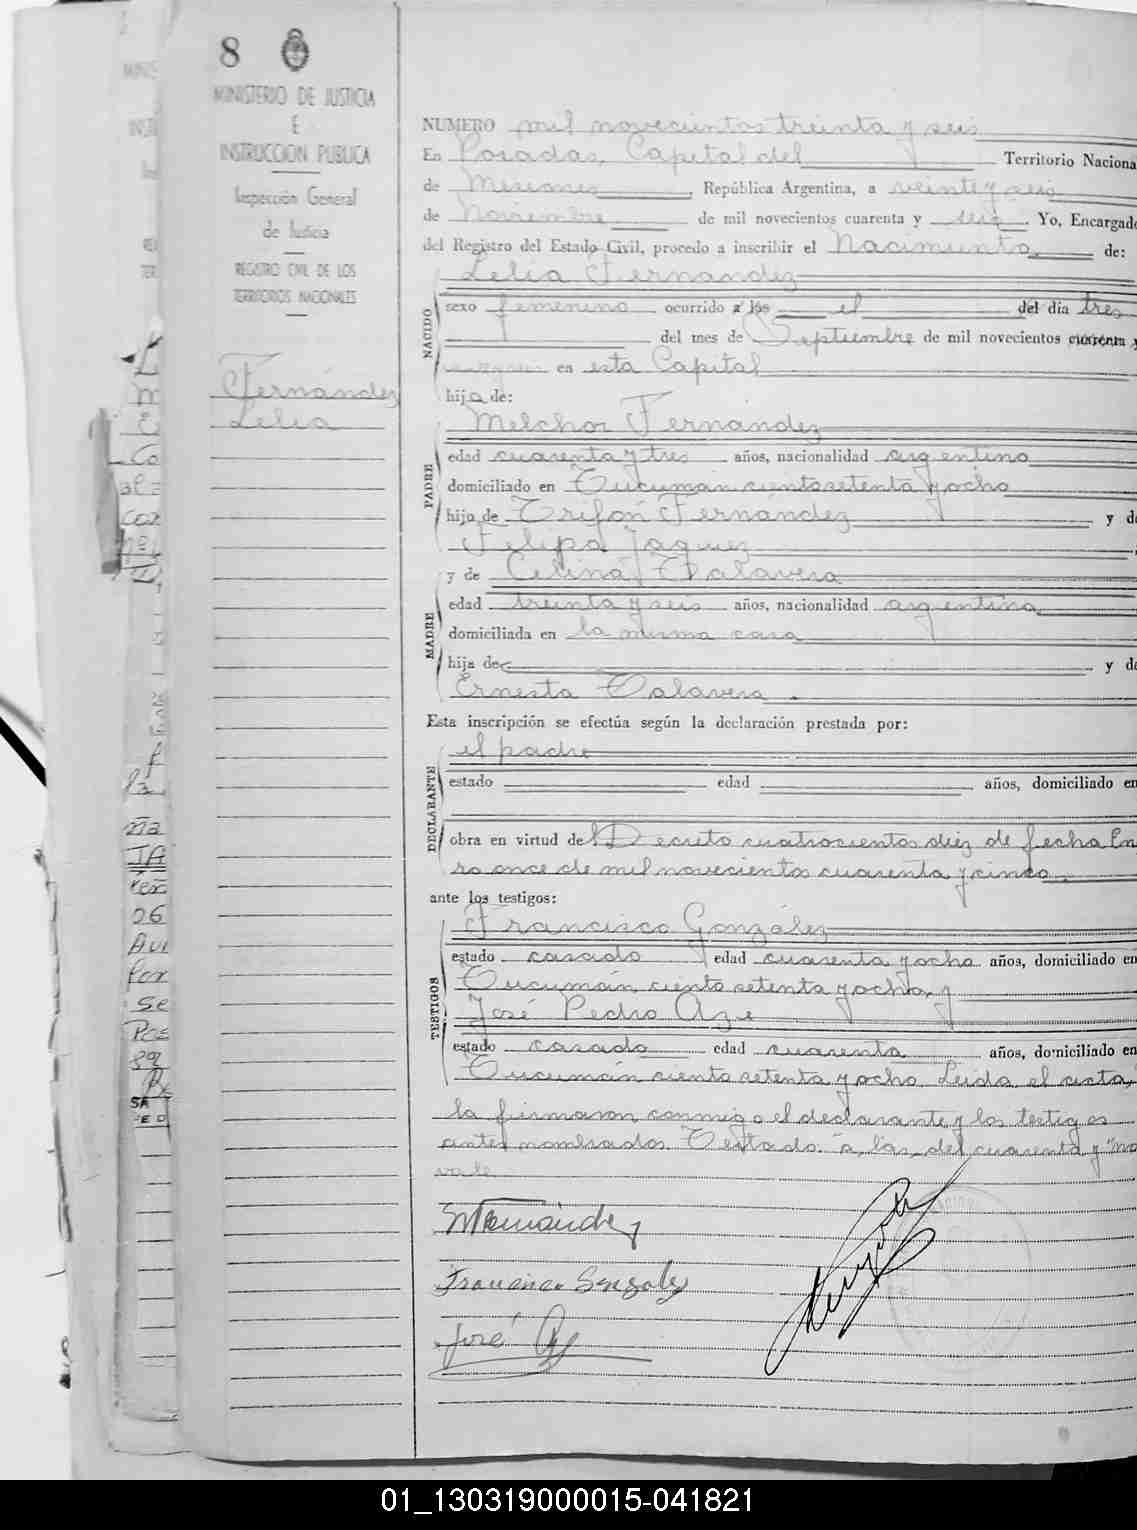 8
MINISTERIO DE JUSTICIA
E
INSTRUCCION PUBLICA
Inspección General
de Justicia
REGISTRO CIVIL DE LOS
TERRITORIOS NACIONALES
Fernández
Lelia
NUMERO mil novecientos treinta y seis
En Posadas, Capital del Territorio Naciona
de Misiones, República Argentina, a veinte y seis
de Noviembre de mil novecientos cuarenta y seis. Yo, Encargad
del Registro del Estado Civil, procedo a inscribir el Nacimiento de:
Lelia Fernandez
NACIDO
sexo femenino ocurrido a las el del día tres
del mes de Septiembre de mil novecientos cuarenta y
en esta Capital
hija de:
PADRE
Melchor Fernández
edad cuarenta y tres años, nacionalidad argentino
domiciliado en Tucumán ciento setenta y ocho
hijo de Trifón Fernández y d
Felipa
MADRE
y de Celina Talavera
edad treinta y seis años, nacionalidad argentina
domiciliada en la misma casa
hija de y d
Ernesta Talavera.
Esta inscripción se efectúa según la declaración prestada por:
DECLARANTE
el padre
estado edad años, domiciliado en
obra en virtud del Decreto cuatrocientos diez de fecha En
ro once de mil novecientos cuarenta y cinco.
ante los testigos:
TESTIGOS
Francisco González
estado casado edad cuarenta y ocho años, domiciliado en
Tucumán, ciento setenta y ocho, y
José Pedro
estado casado edad cuarenta años, domiciliado en
Tucumán ciento setenta y ocho. Leida el acta,
la firmaron conmigo el declarante y los testigos
antes nombrados. Testado: "a, las, del cuarenta y" no
vale.
Fernández
Francisco Gonzalez
José
01_130319000015-041821